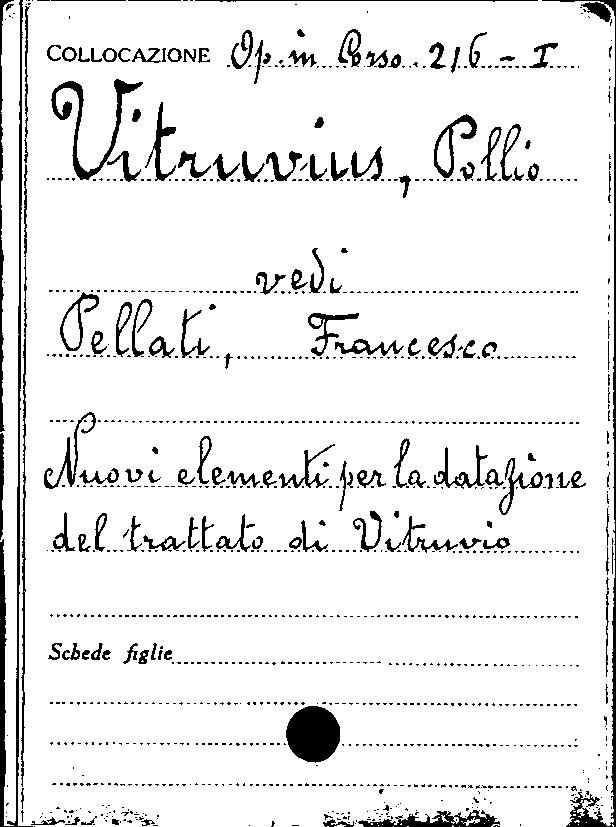 COLLOCAZIONE Op. in Corso. 216 - I
Vitruvius, Pollio
vedi
Pellati, Francesco
Nuovi elementi per la datazione
del trattato di Vitruvio
Schede figlie